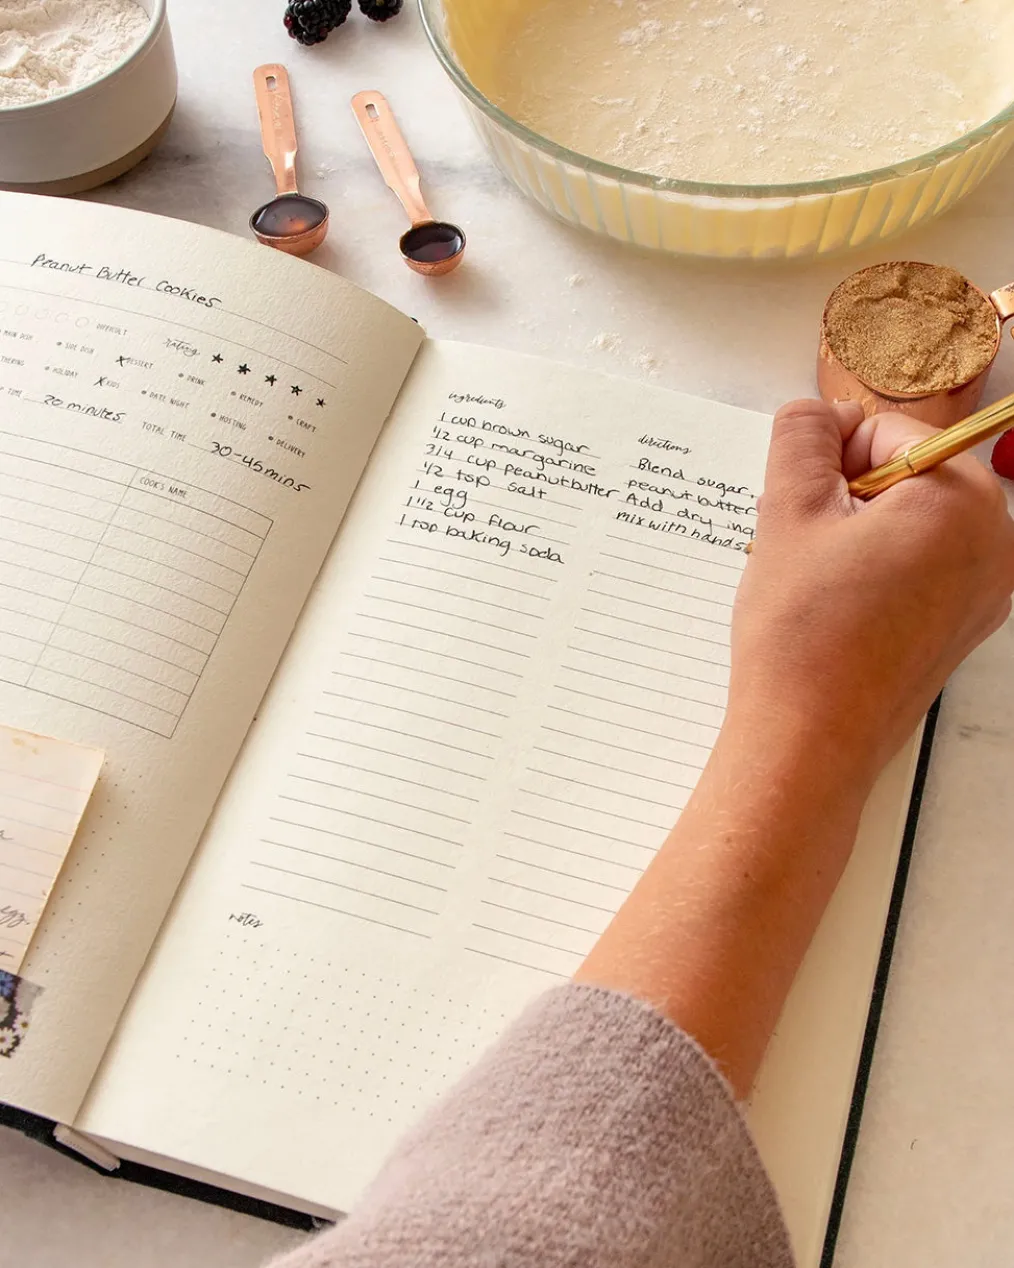 Peanut Butter Cookies
DIFFICULT
rating
MAIN DISH
SIDE DISH
DESSERT
DRINK
REMEDY
CRAFT
THERING
HOLIDAY
KIDS
DATE NIGHT
HOSTING
DELIVERY
TIME 20 minutes
TOTAL TIME 30-45mins
COOK'S NAME
egg.
ingredients
1 cup brown sugar
1/2 cup margarine
3/4 cup peanutbutter
1/2 tsp salt
1 egg
1 1/2 cup flour
1 tsp baking soda
directions
Blend sugar,
peanutbutter
Add dry ing
mix with hands
notes